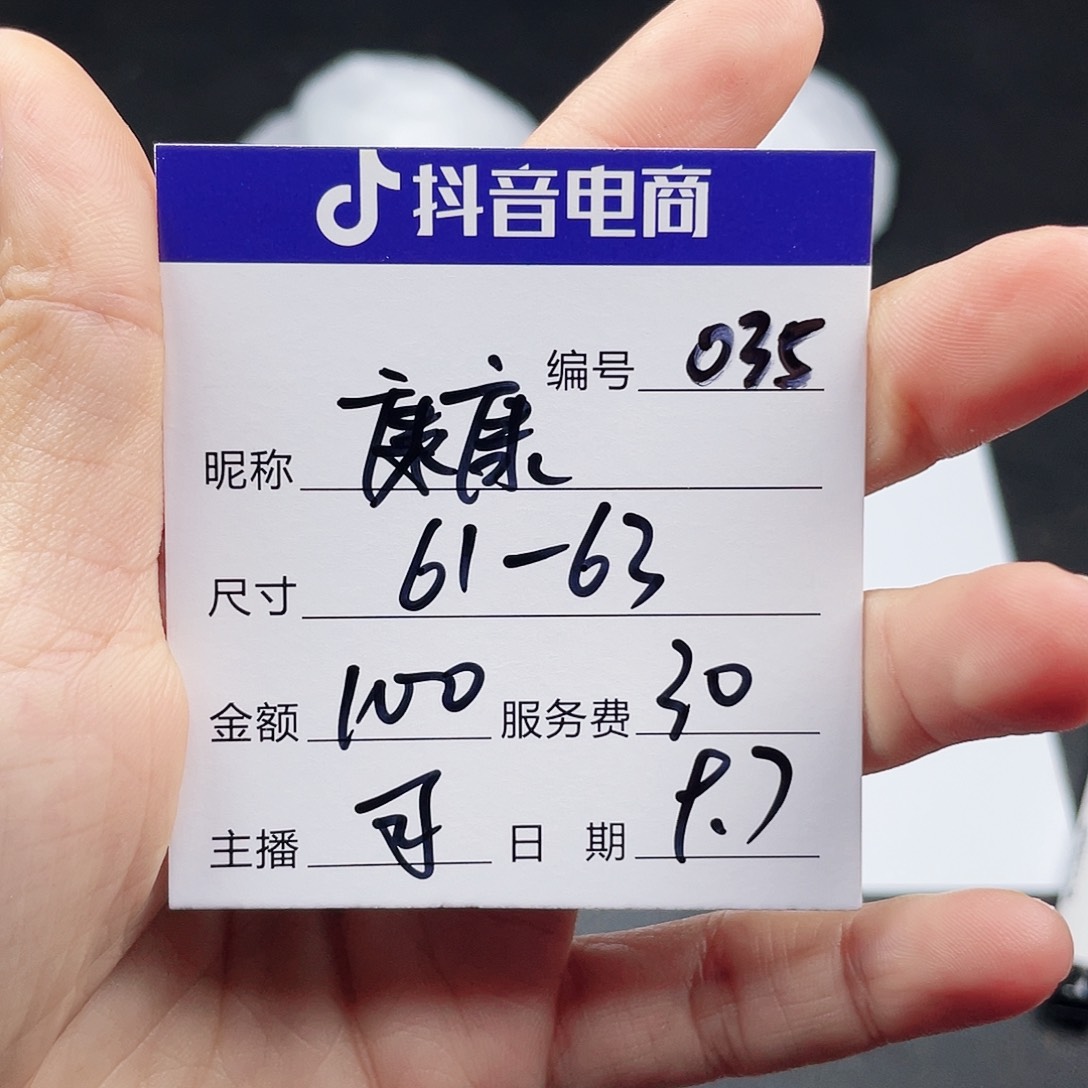 抖音电商
编号 035
昵称 康康
尺寸 61-63
金额 100 服务费 30
主播 日期